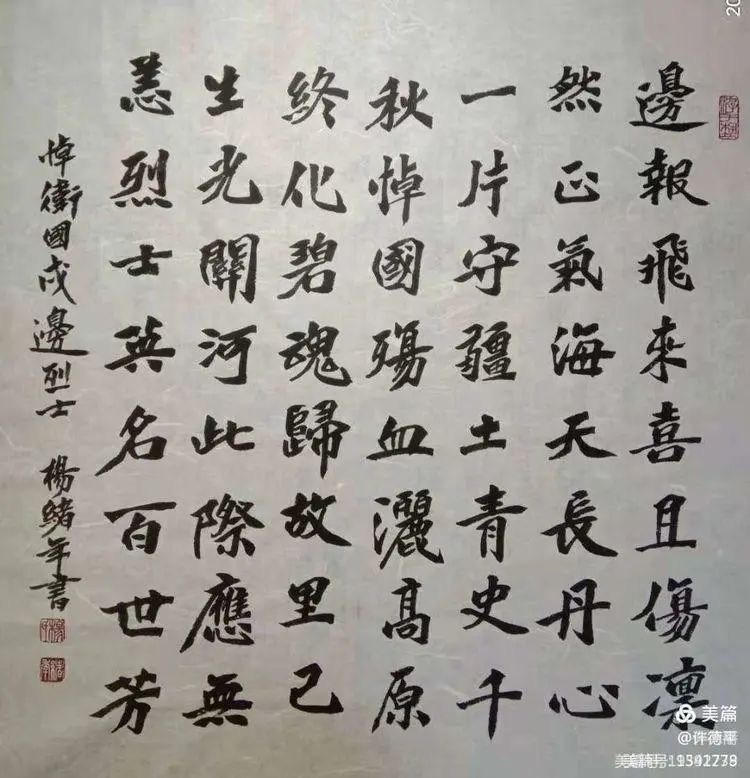 邊報飛來喜且傷凛
然正氣海天長丹心
一片守疆土青史千
秋悼國殤血灑高原
終化碧魂歸故里己
生光關河此際應無
恙烈士英名百世芳
悼衛國戍邊烈士 楊緒年書
20
美篇